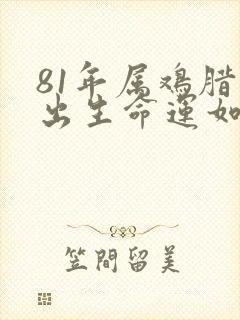 81年属鸡腊
出生命运如
笠間留美